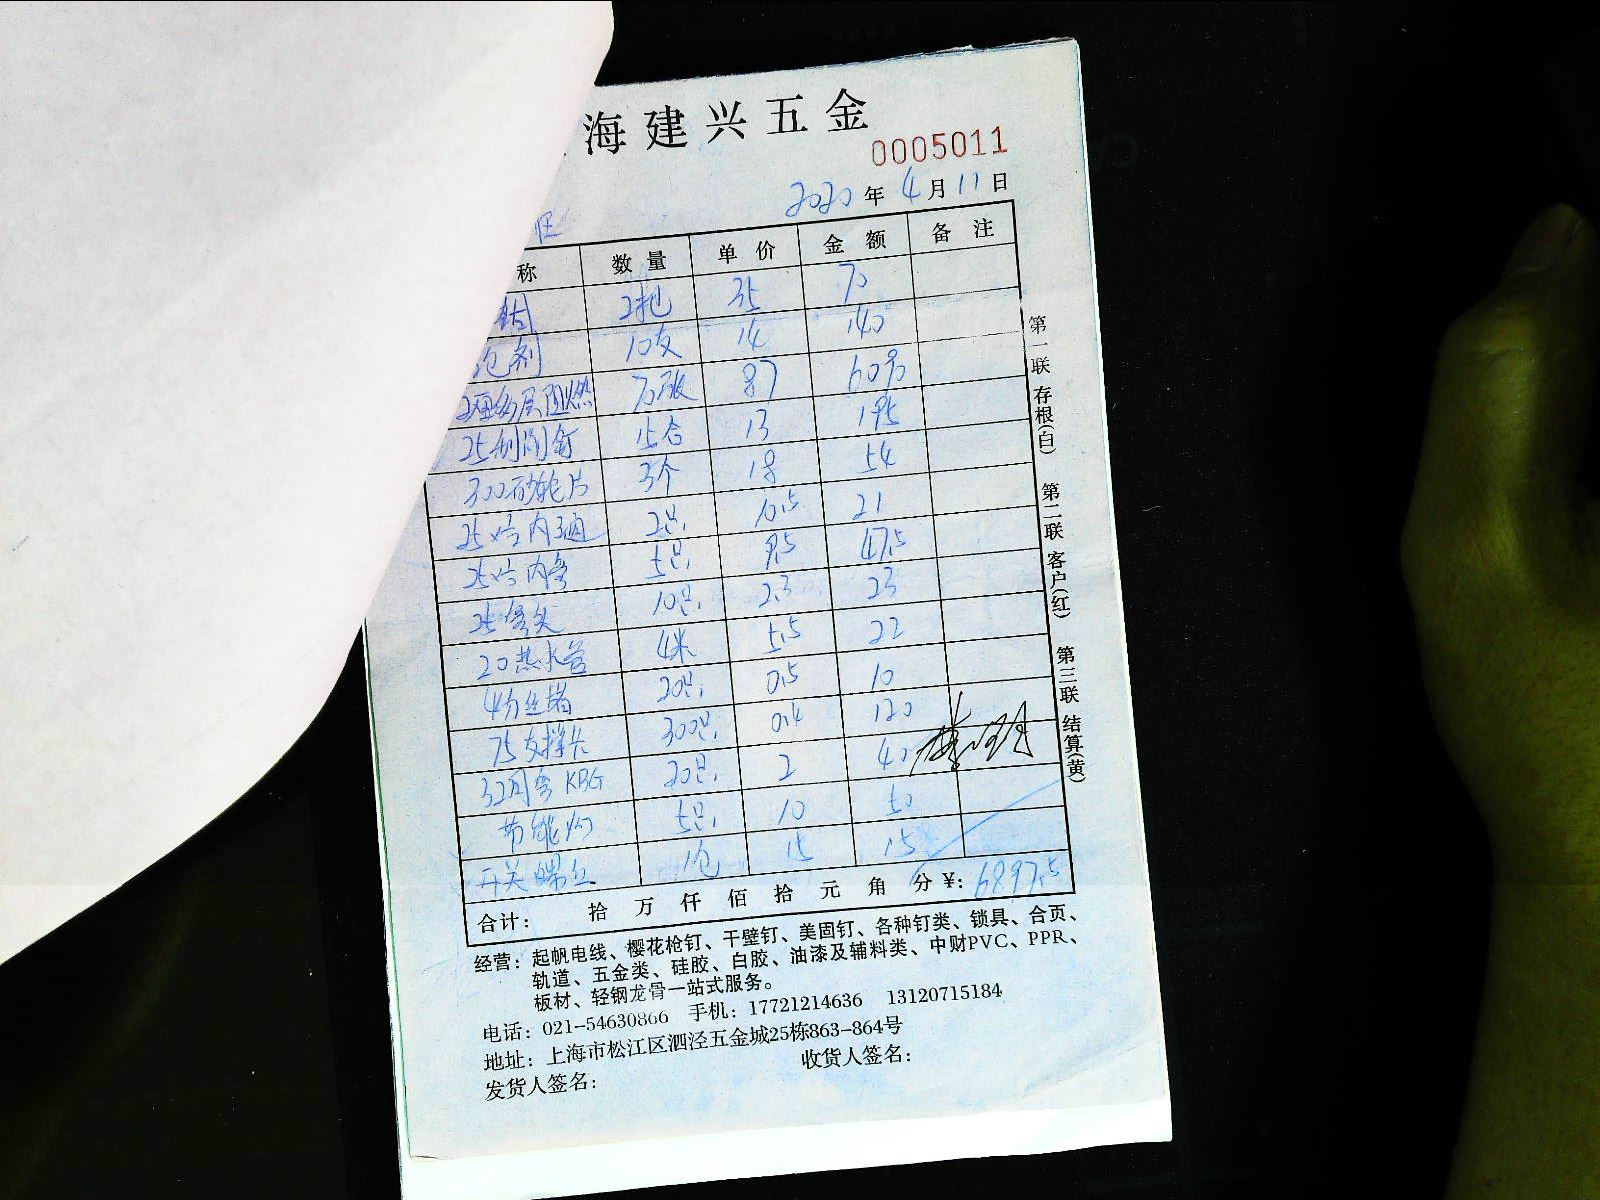 海建兴五金
0005011
2020年4月11日
称 数量 单价 金额 备注
2把 35 70
泡剂 10支 14 140
阻燃 70张 87 6090
25 钉 15合 13 195
300砂轮片 3个 18 54
25 内 2只 10.5 21
25 内弯 5只 9.5 47.5
25弯头 10只 2.3 23
20热水管 4米 5.5 22
4分丝堵 20只 0.5 10
75支撑卡 300只 0.4 120
32 KBG 20只 2 40
节能灯 5只 10 50
开关螺丝 1包 15 15
合计: 拾 万 仟 佰 拾 元 角 分¥: 6897.5
第一联 存根(白) 第二联 客户(红) 第三联 结算(黄)
经营: 起帆电线、樱花枪钉、干壁钉、美固钉、各种钉类、锁具、合页、
轨道、五金类、硅胶、白胶、油漆及辅料类、中财PVC、PPR、
板材、轻钢龙骨一站式服务。
电话: 021-54630866 手机: 17721214636 13120715184
地址: 上海市松江区泗泾五金城25栋863-864号
发货人签名: 收货人签名: